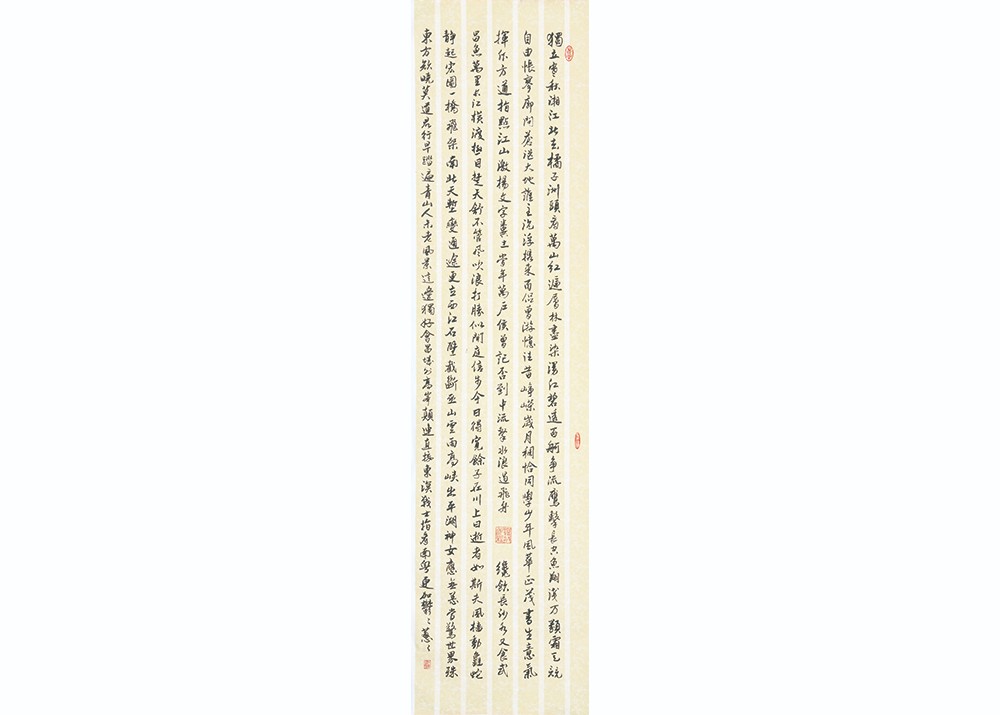 獨立寒秋湘江北去橘子洲頭看萬山紅遍層林盡染漫江碧透百舸争流鷹擊長空魚翔淺底萬類霜天競
自由悵寥廓問蒼茫大地誰主沉浮携來百侣曾游憶往昔崢嶸歲月稠恰同學少年風華正茂書生意氣
揮斥方遒指點江山激揚文字糞土當年萬户侯曾記否到中流擊水浪遏飛舟 纔飲長沙水又食武
昌魚萬里長江横渡極目楚天舒不管風吹浪打勝似閑庭信步今日得寬餘子在川上曰逝者如斯夫風檣動龜蛇
静起宏圖一橋飛架南北天塹變通途更立西江石壁截斷巫山雲雨高峽出平湖神女應無恙當驚世界殊
東方欲曉莫道君行早踏遍青山人未老風景這邊獨好會昌城外高峰顛連直接東溟戰士指看南粤更加鬱鬱葱葱